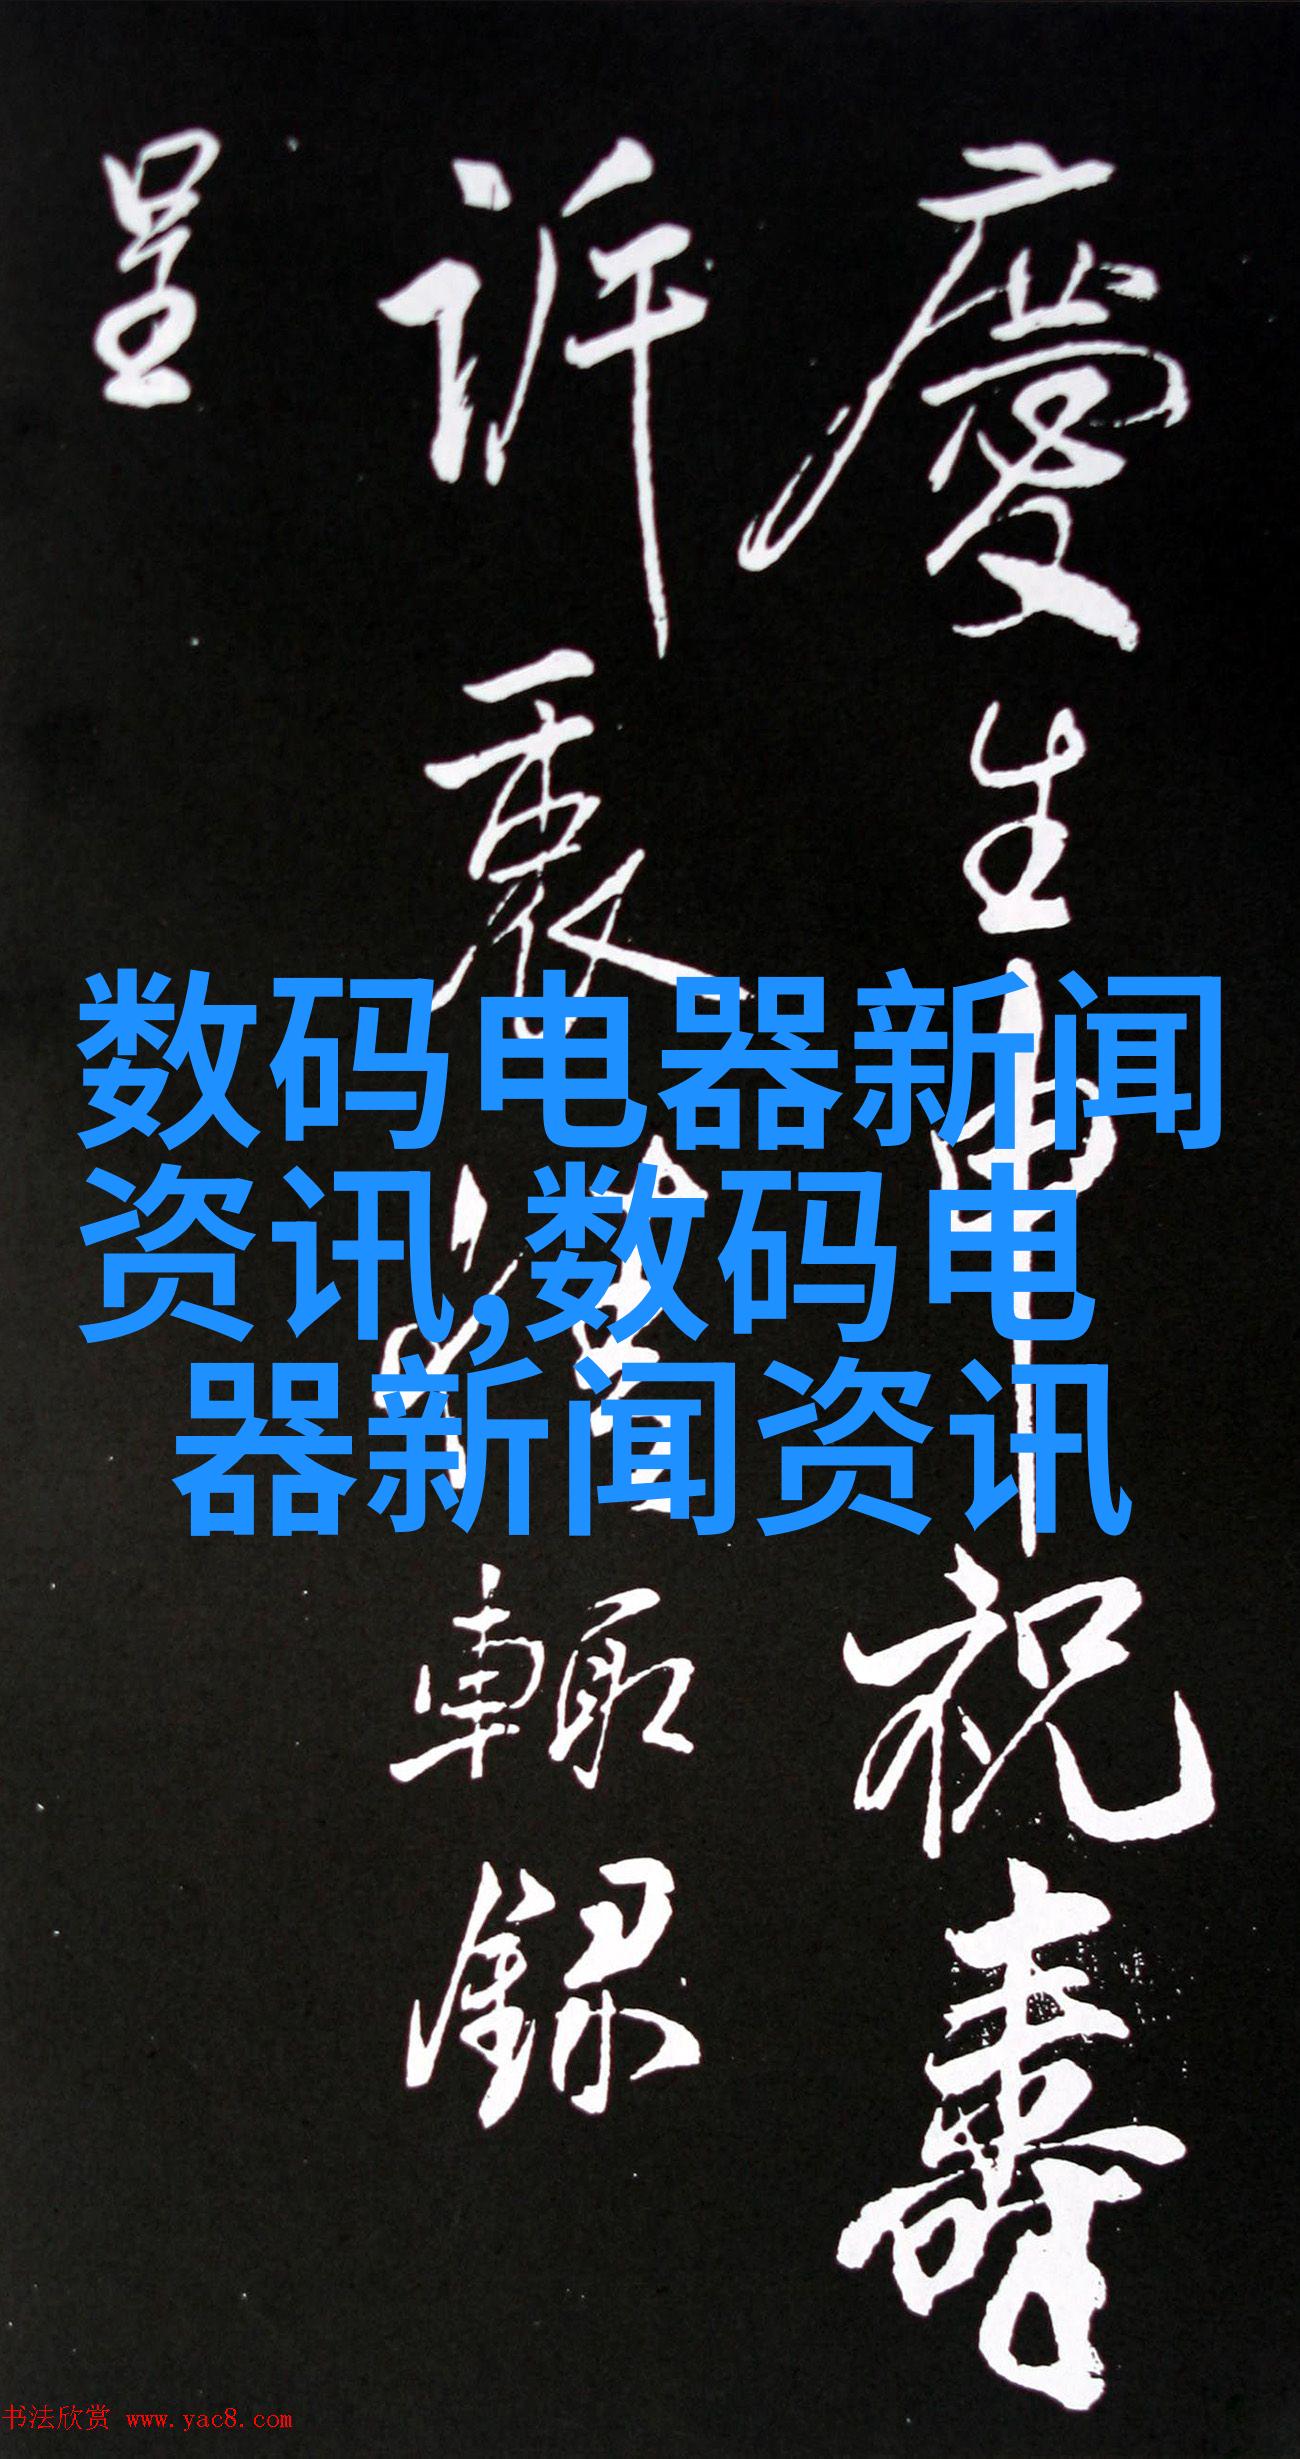 慶生申祝壽
訴衷輒錄
呈
数码电器新闻
资讯,数码电
器新闻资讯
书法欣赏 www.yac8.com